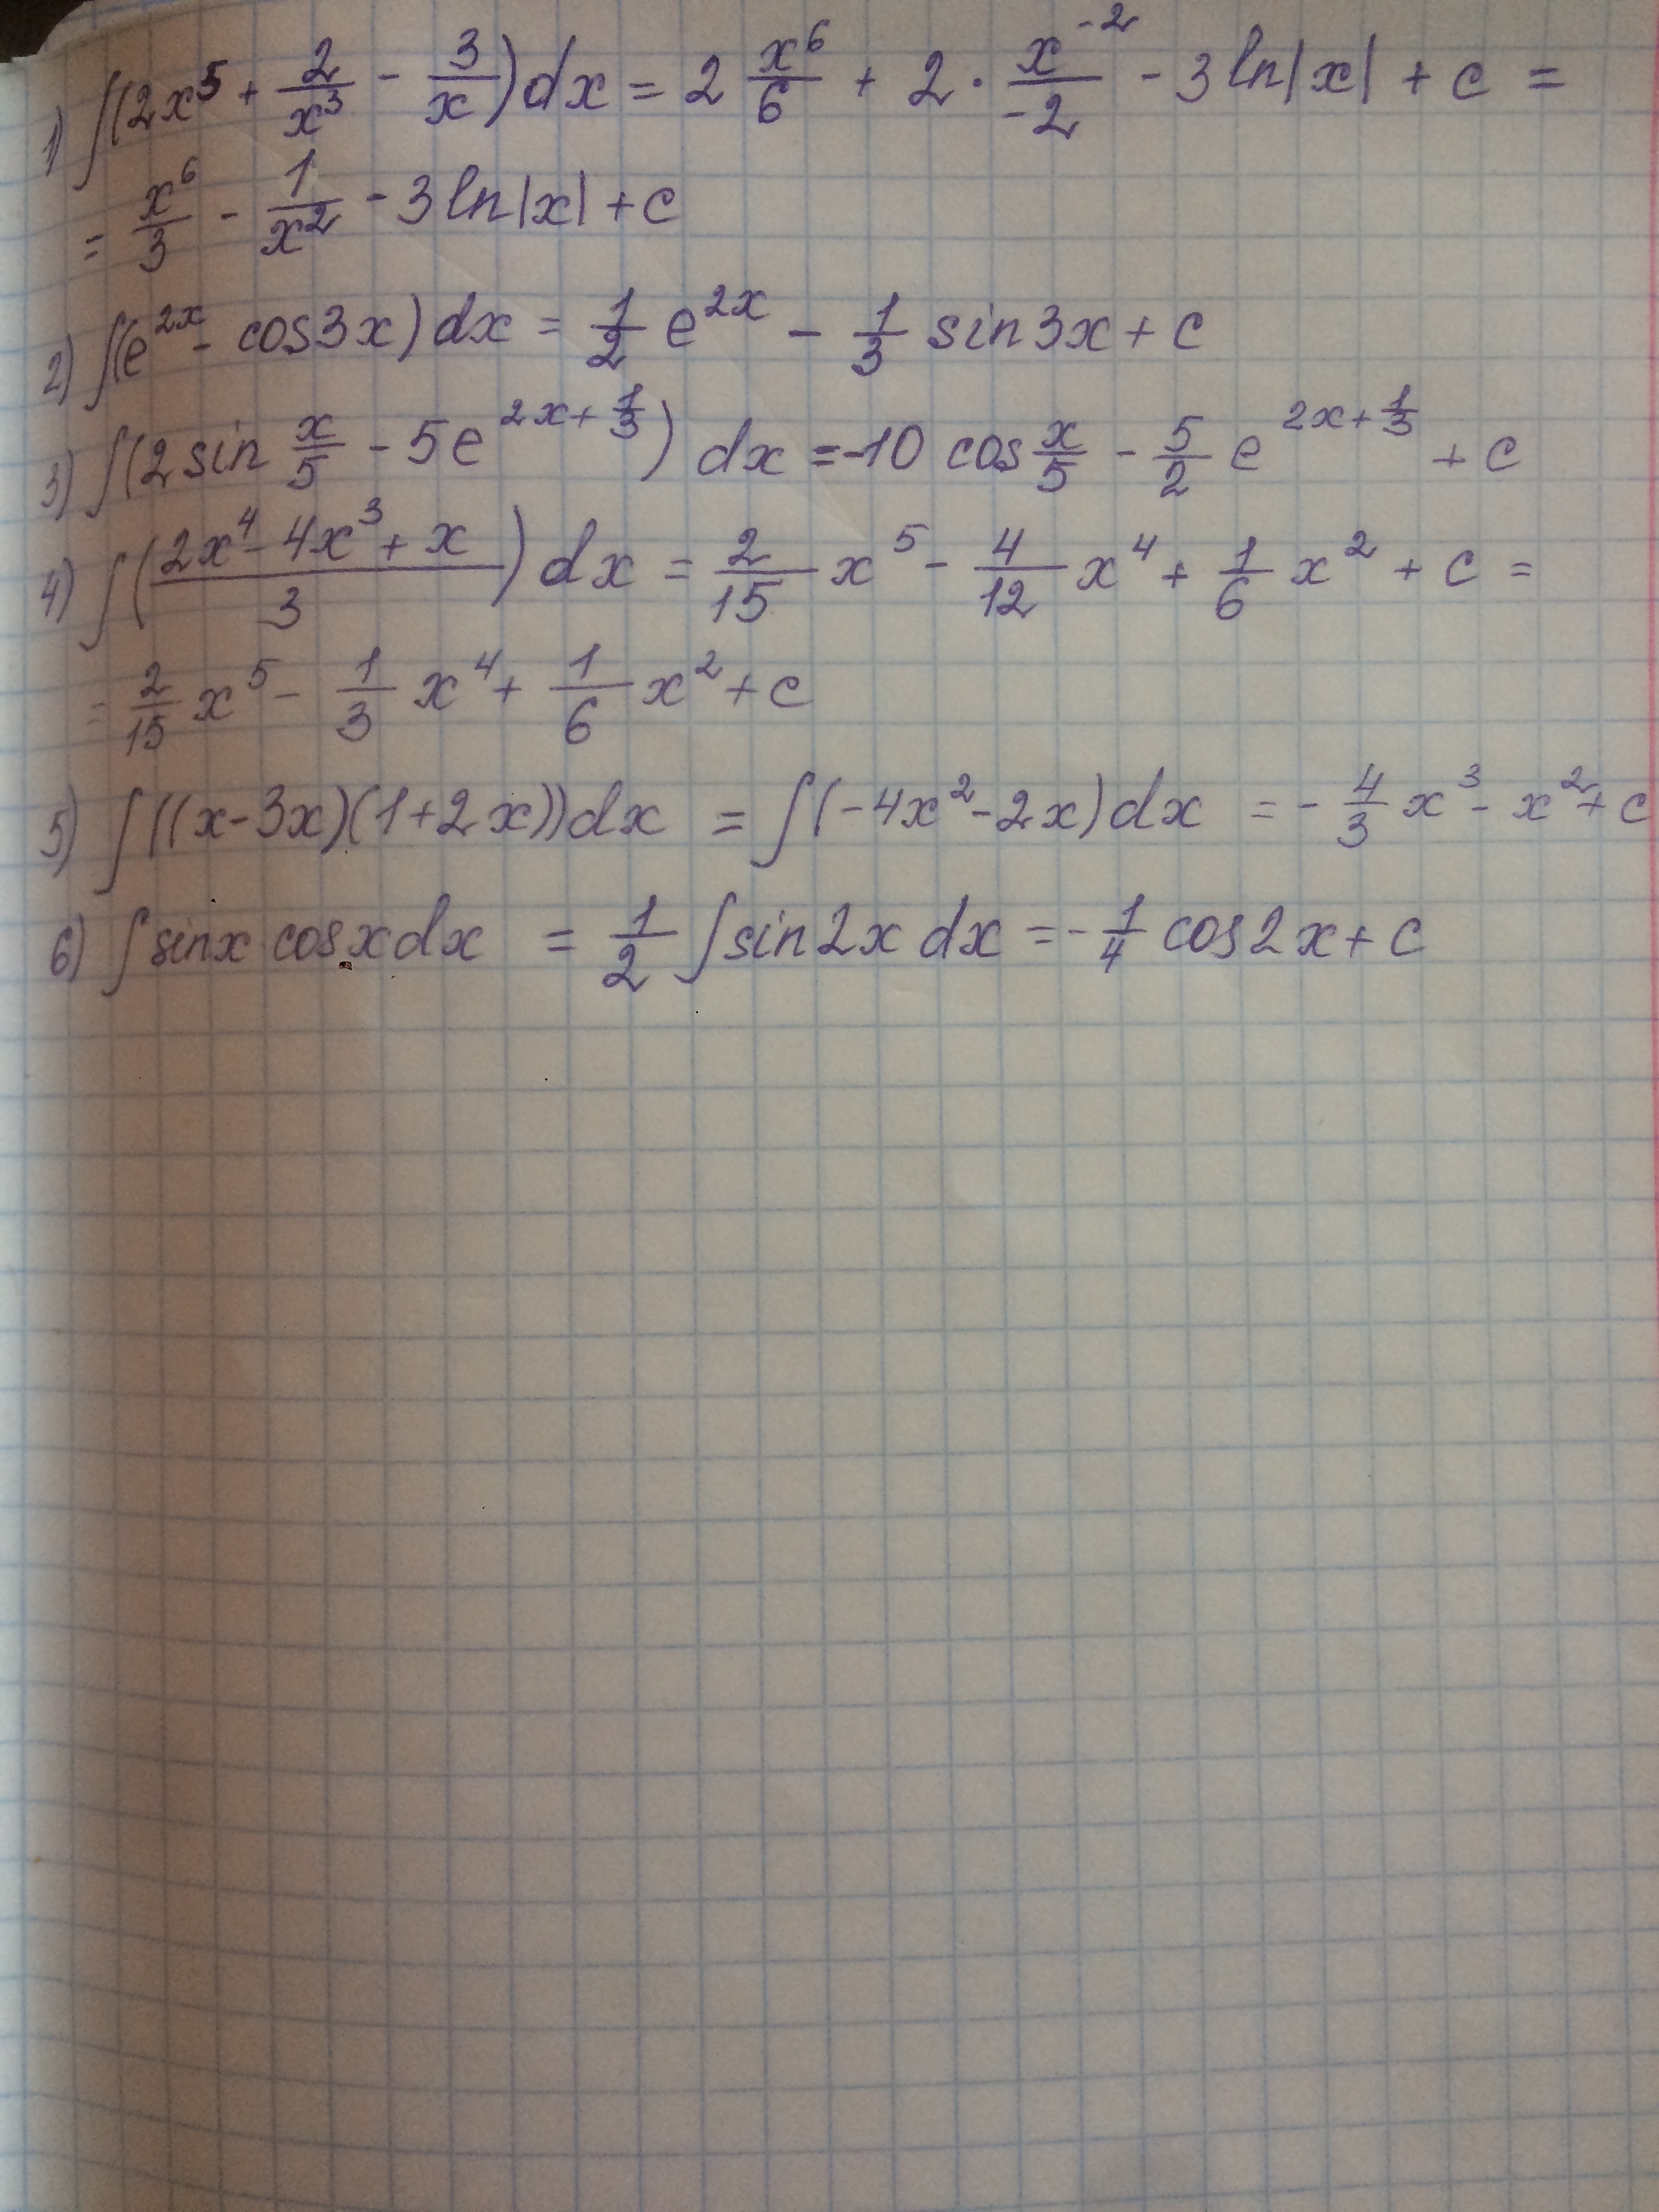 1) ∫(2x⁵ + 2/x³ - 3/x)dx = 2 x⁶/6 + 2 · x⁻²/-2 - 3 ln|x| + c =
= x⁶/3 - 1/x² - 3 ln|x| + c
2) ∫(e²ˣ - cos3x)dx = 1/2 e²ˣ - 1/3 sin3x + c
3) ∫(2 sin x/5 - 5e^(2x+1/3)) dx = -10 cos x/5 - 5/2 e^(2x+1/3) + c
4) ∫((2x⁴ - 4x³ + x)/3) dx = 2/15 x⁵ - 4/12 x⁴ + 1/6 x² + c =
= 2/15 x⁵ - 1/3 x⁴ + 1/6 x² + c
5) ∫((x-3x)(1+2x))dx = ∫(-4x² - 2x)dx = - 4/3 x³ - x² + c
6) ∫sinx cosx dx = 1/2 ∫sin2x dx = - 1/4 cos2x + c